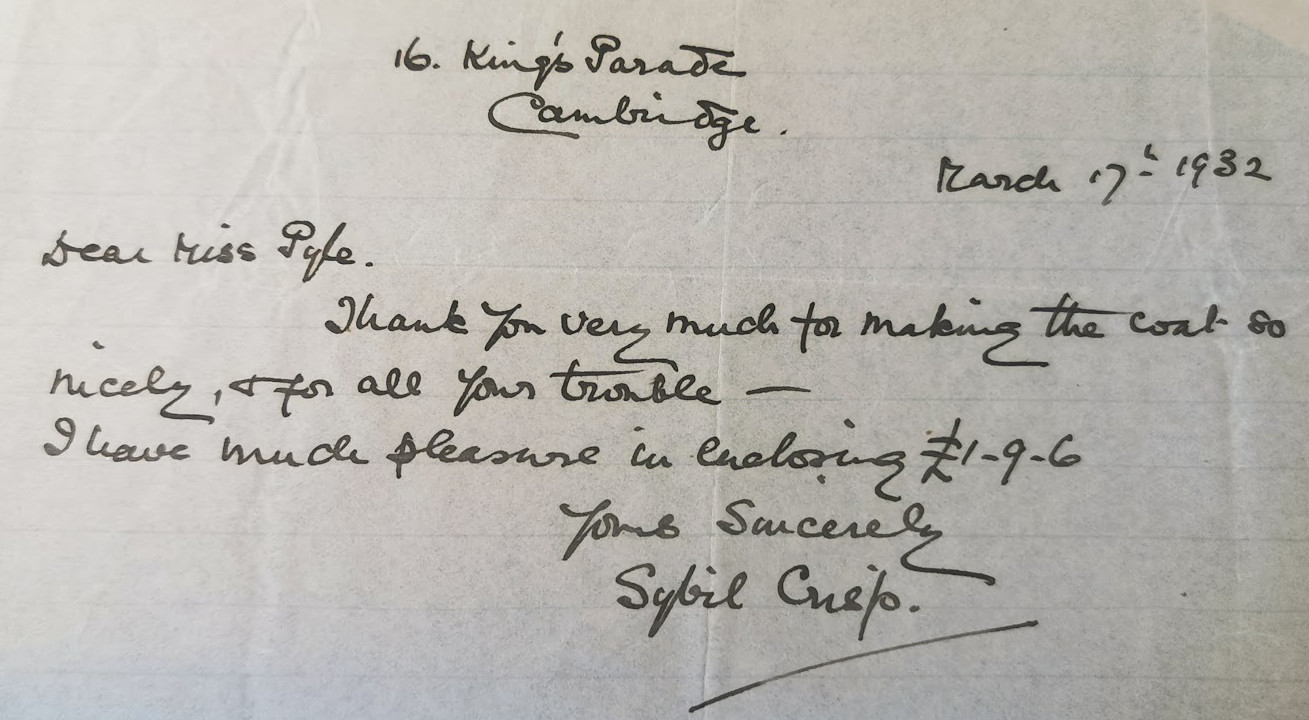 16. King's Parade
Cambridge.
March 17th 1932
Dear Miss Pyle.
Thank you very much for making the coat so
nicely, & for all your trouble —
I have much pleasure in enclosing £1-9-6
Yours Sincerely
Sybil Crisp.